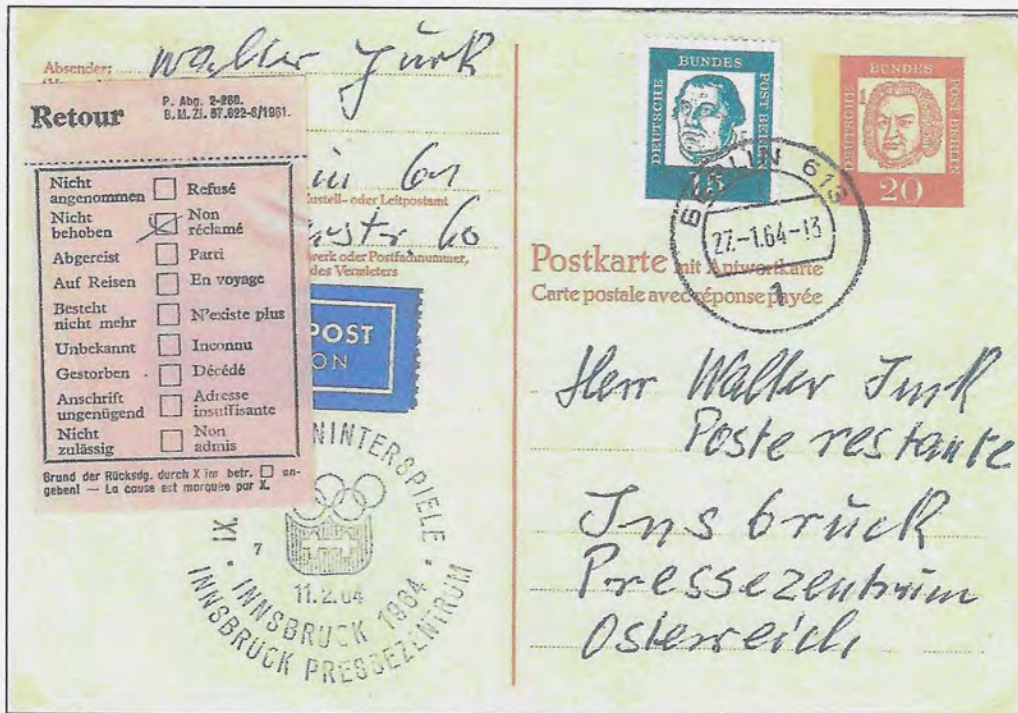 Absender: Walter Jurk
Retour
P. Abg. 2-280.
B. M. Zl. 57.622-8/1961.
Nicht angenommen Refusé
Nicht behoben Non réclamé
Abgereist Parti
Auf Reisen En voyage
Besteht nicht mehr N'existe plus
Unbekannt Inconnu
Gestorben Décédé
Anschrift ungenügend Adresse insuffisante
Nicht zulässig Non admis
Grund der Rücksdg. durch X im betr. □ an-
geben! — La cause est marquée par X.
Zustell- oder Leitpostamt
60
werk oder Postfachnummer,
des Vermieters
POST
ON
IX. WINTERSPIELE
INNSBRUCK 1964
7
11.2.64
INNSBRUCK PRESSEZENTRUM
DEUTSCHE BUNDESPOST BERLIN
15
DEUTSCHE BUNDESPOST BERLIN
20
BERLIN 613
27.-1.64-13
1
Postkarte mit Antwortkarte
Carte postale avec réponse payée
Herr Walter Jurk
Poste restante
Insbruck
Pressezentrum
Österreich